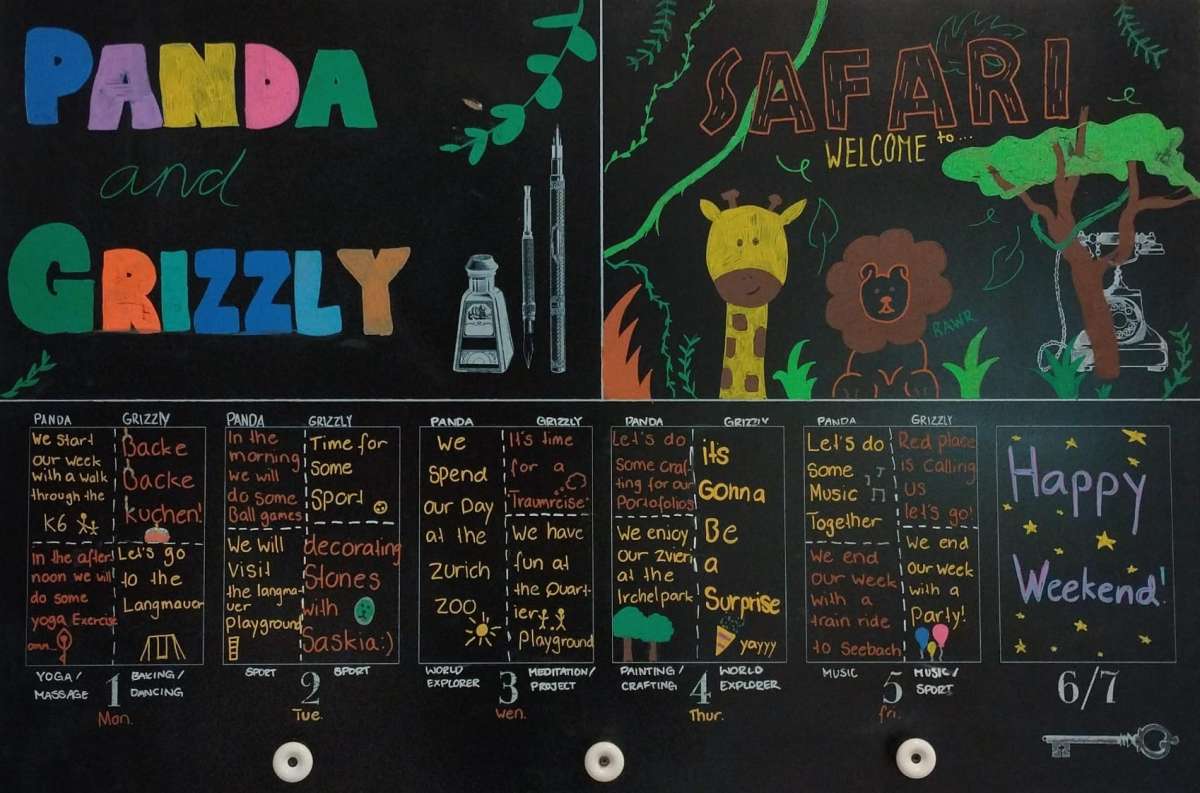 PANDA
and
GRIZZLY
SAFARI
WELCOME to...
RAWR
PANDA
We start
our week
with a walk
through the
K6
In the after
noon we will
do some
yoga Exercise
omn...
YOGA/
MASSAGE
GRIZZLY
Backe
Backe
kuchen!
Let's go
to the
Langmauer
BAKING/
DANCING
1
Mon.
PANDA
In the
morning
we will
do some
Ball games
We will
Visit
the langma-
uer
Playground
SPORT
GRIZZLY
Time for
some
Sport
decorating
Stones
with
Saskia:)
SPORT
2
Tue.
PANDA
We
spend
our Day
at the
Zurich
ZOO
WORLD
EXPLORER
GRIZZLY
It's time
for a
"Traumreise"
We have
fun at
the Quart-
ier
Playground
MEDITATION/
PROJECT
3
Wen.
PANDA
Let's do
Some craf-
ting for our
Portofolios
We enjoy
our Zvieri
at the
Irchelpark
PAINTING/
CRAFTING
GRIZZLY
its
Gonna
Be
a
Surprise
yayyy
WORLD
EXPLORER
4
Thur.
PANDA
Let's do
some
Music
Together
We end
our week
with a
train ride
to Seebach!
MUSIC
GRIZZLY
Red place
is calling
us
let's go!
We end
our week
with a
Party!
MUSIC/
SPORT
5
fri.
Happy
Weekend!
6/7